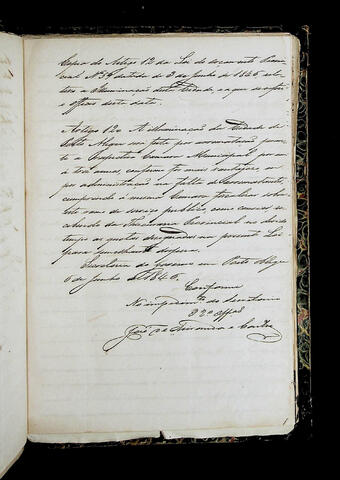 Copia do Artigo 12 da Lei do orçamento Provin
cial Nº 56 datada de 2 de Junho de 1846 rela
tivo a illuminação desta Cidade, e a que se refere
o Officio desta data.
Artigo 12º A illuminação da Cidade de
Porto Alegre será feita por arrematação peran
te a respectiva Camara Municipal por um
a tres annos, conforme for mais vantajoso, ou
por administração na falta de Arrematante,
cumprindo á mesma Camara fiscalisar sobre
este ramo de serviço publico, como
da Provincial
tempo as quotas na presente Lei
para semelhante despesa.
Secretaria do Governo em Porto Alegre
6 de Junho de 1846.
Conforme
No impedimento do Secretario
O 2º Offal
José de e Castro